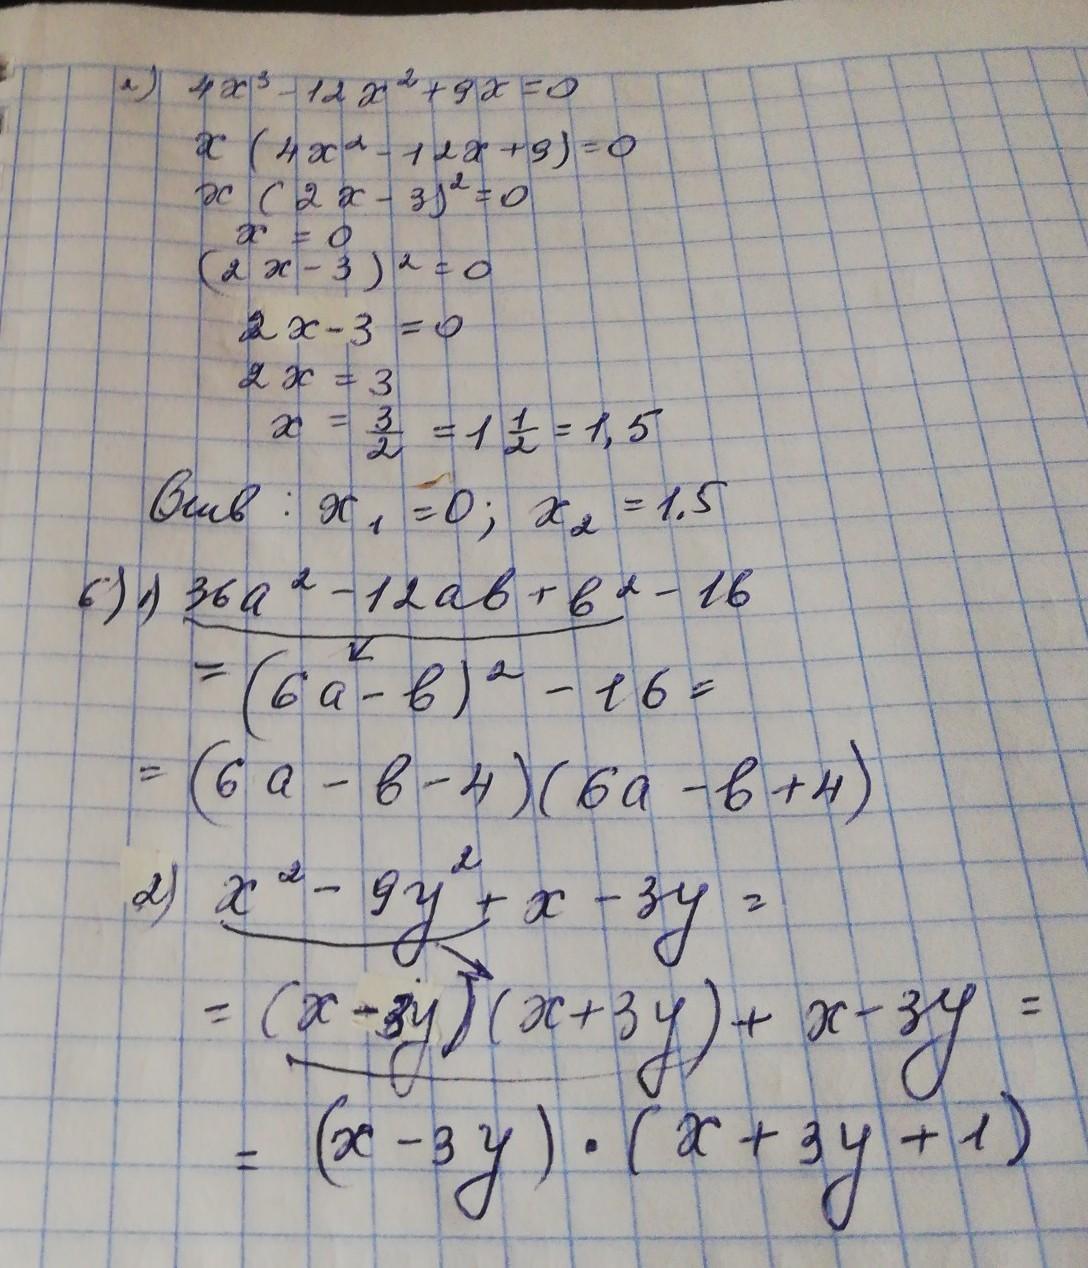 2) 4x³-12x²+9x=0
x(4x²-12x+9)=0
x(2x-3)²=0
x=0
(2x-3)²=0
2x-3=0
2x=3
x=3/2=1 1/2=1,5
x₁=0; x₂=1.5
б) 1) 36a²-12ab+b²-16
=(6a-b)²-16=
=(6a-b-4)(6a-b+4)
2) x²-9y²+x-3y=
=(x-3y)(x+3y)+x-3y=
=(x-3y)·(x+3y+1)